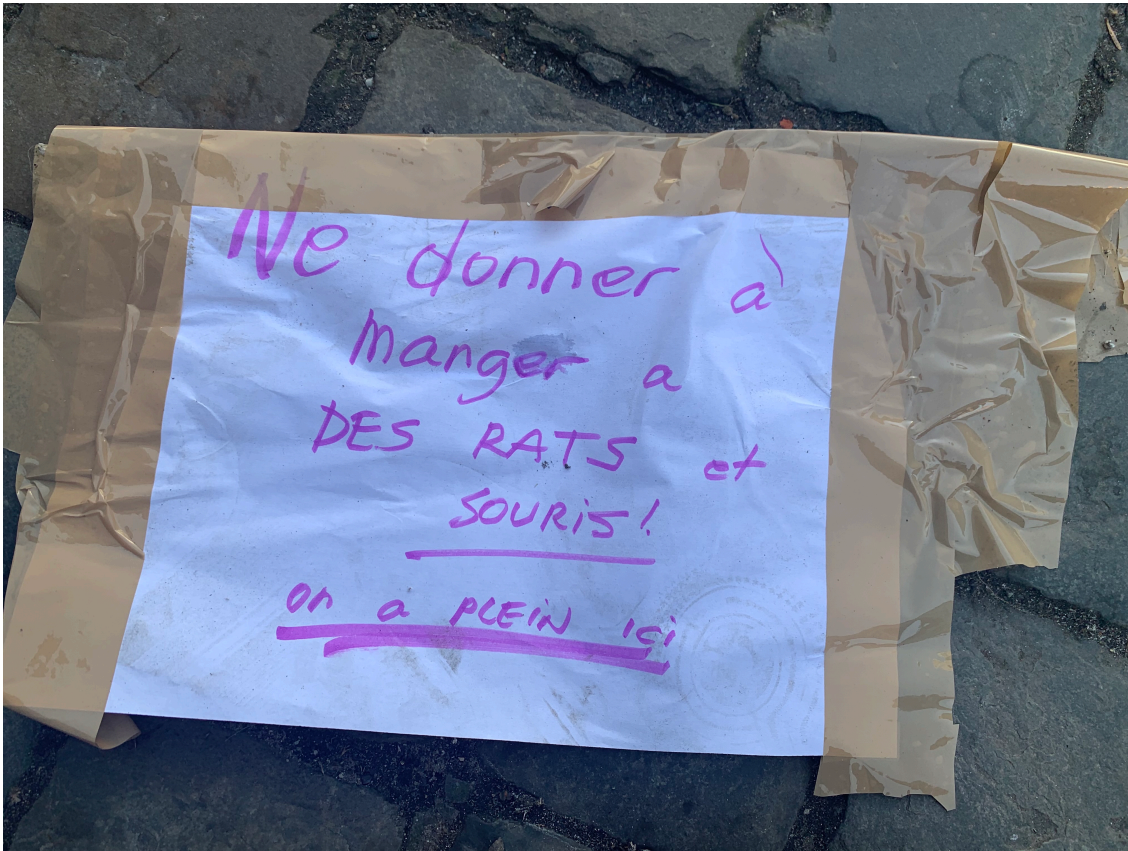 Ne donner à
manger a
DES RATS et
SOURIS!
on a PLEIN ici